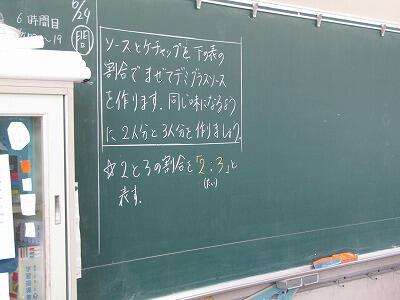 6時間目
5/24
問
ソースとケチャップを下の表の
割合でまぜてデミグラスソース
を作ります。同じ味になるよう
に2人分と3人分を作りましょう。
☆2と3の割合を「2:3」と
(たい)
表す。